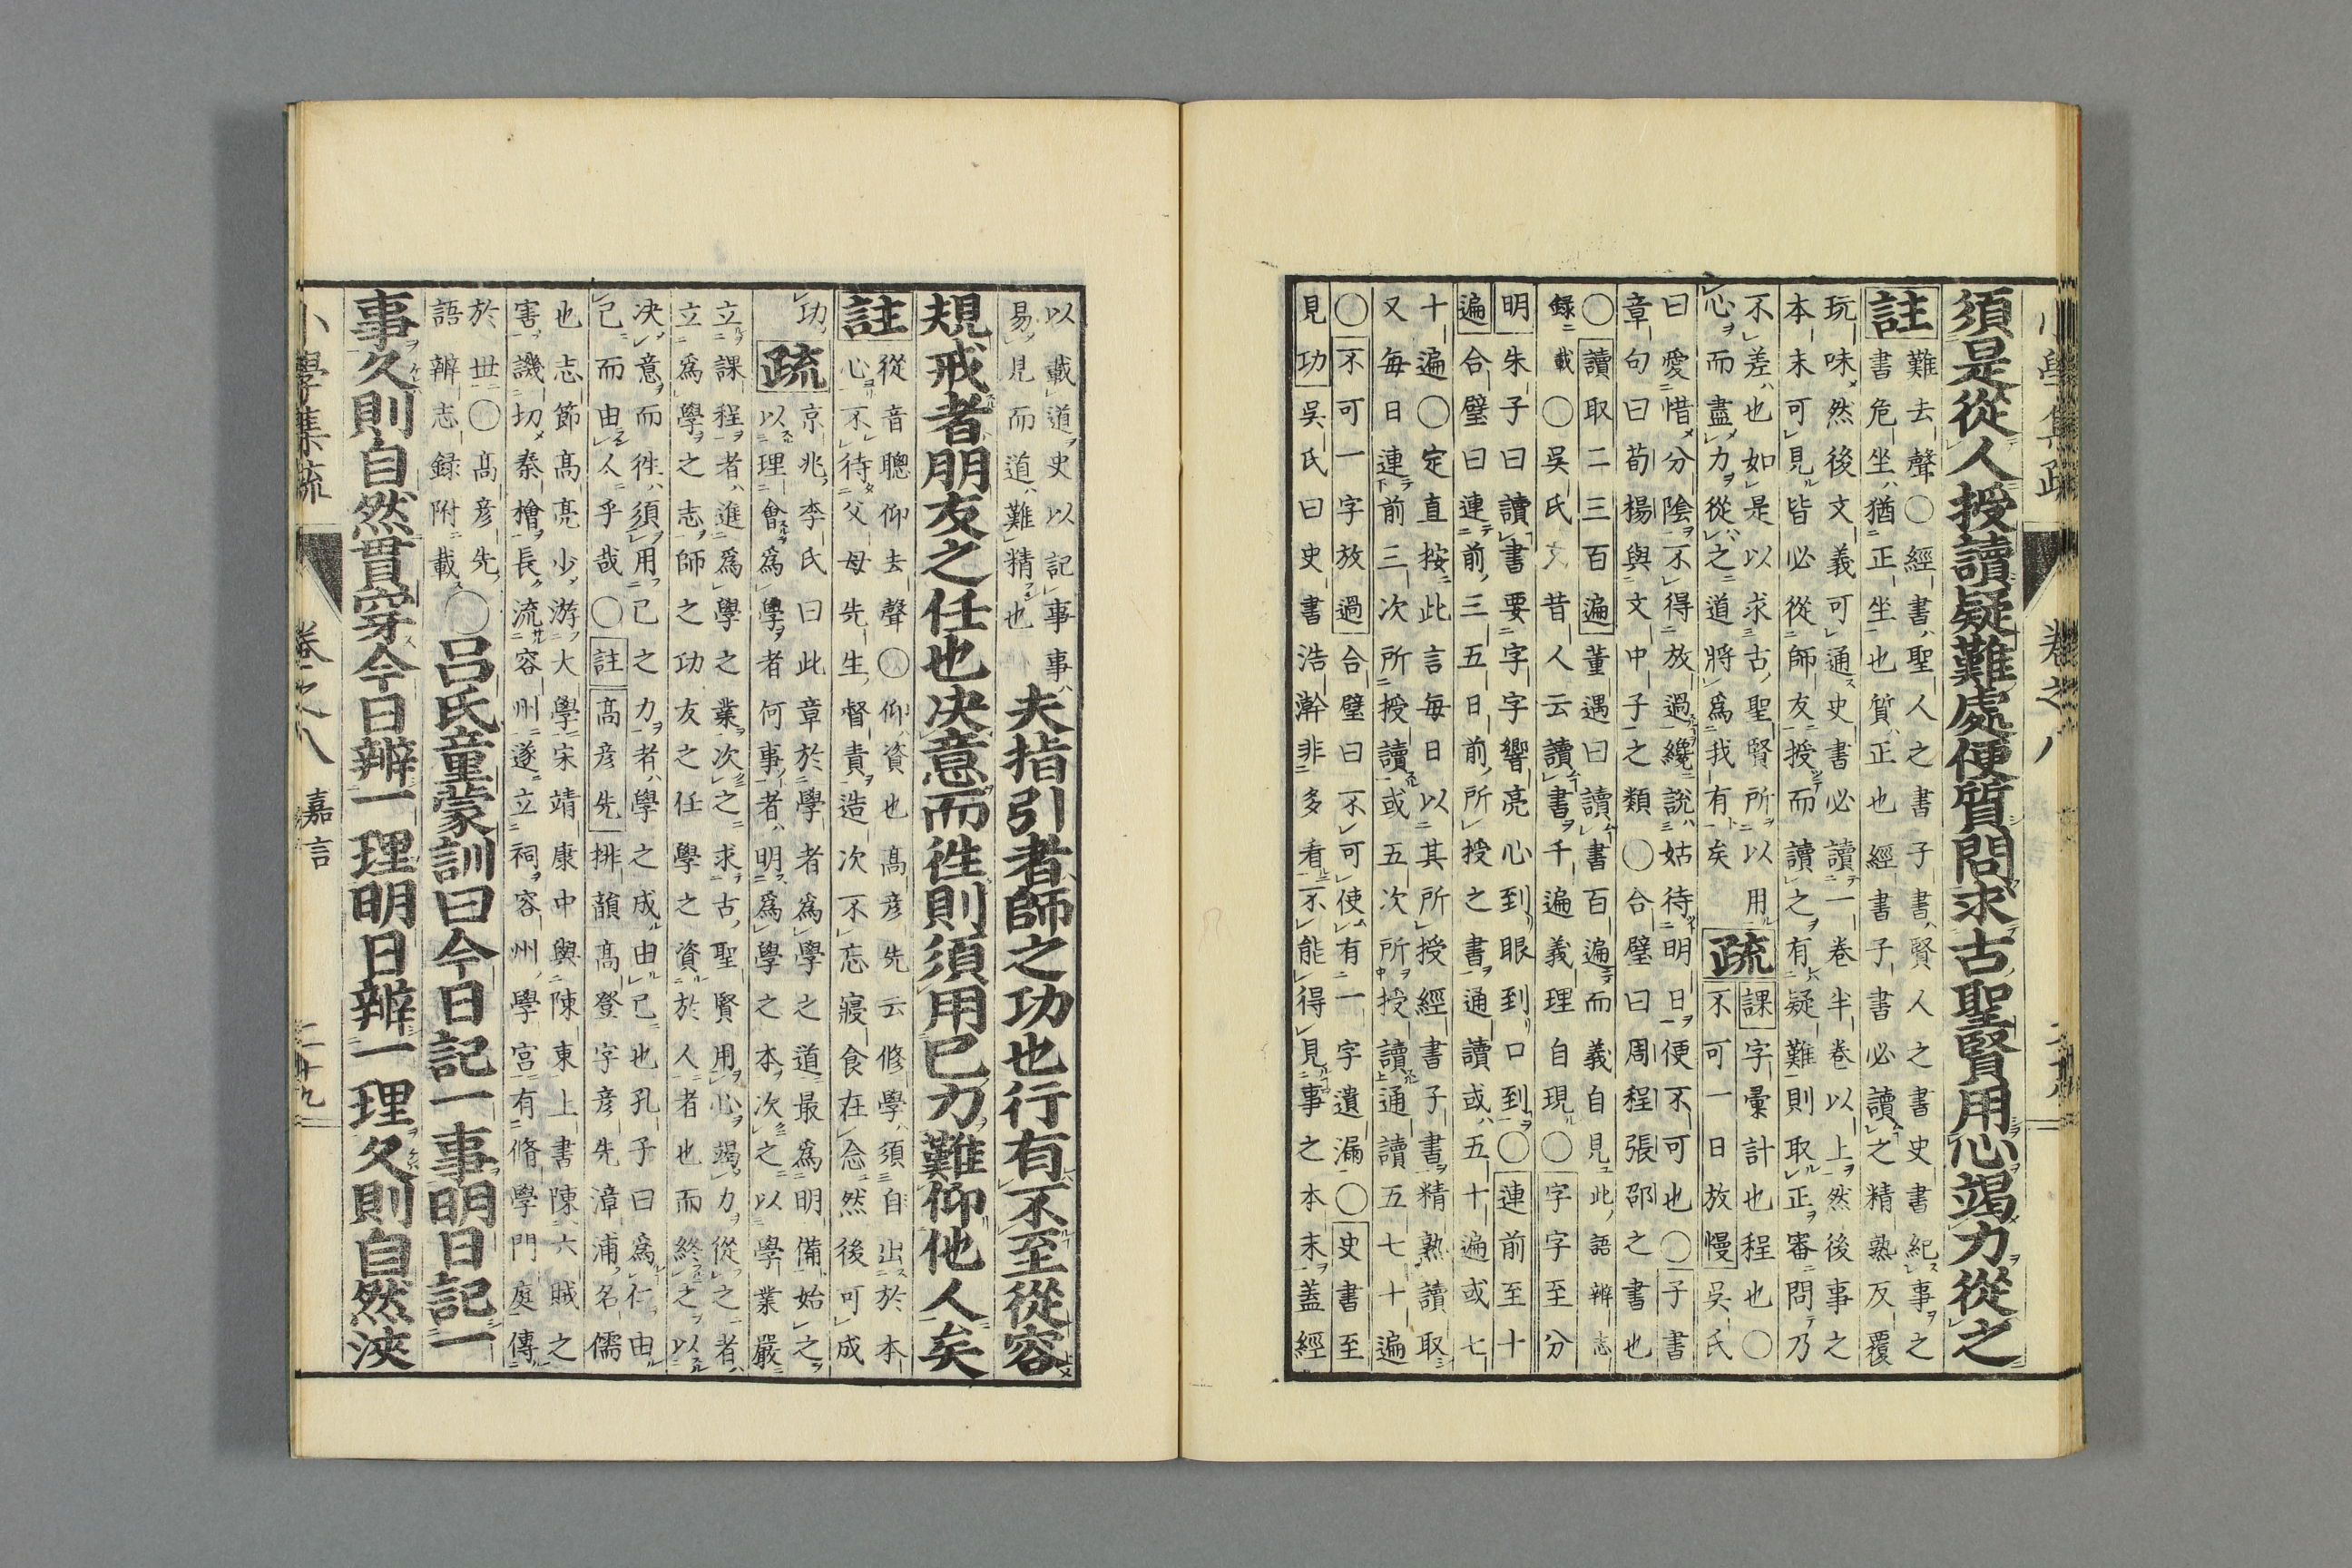 須是從人授讀疑難處便質問求古聖賢用心竭力從之
註
難去聲○經書聖人之書子書賢人之書史書紀事之
書危坐猶正坐也質正也經書子書必讀之精熟反覆
玩味然後文義可通史書必讀一卷半卷以上然後事之
本末可見皆必從師友授而讀之有疑難則取正審問乃
不差也如是以求古聖賢所以用
心而盡力從之道將爲我有矣
疏
課字彙計也程也○
不可一日放慢吳氏
曰愛惜分陰不得放過纔說姑待明日便不可也○子書
章句曰荀揚與文中子之類○合璧曰周程張邵之書也
○讀取二三百遍董遇曰讀書百遍而義自見此語辨志
録載○吳氏又昔人云讀書千遍義理自現○字字至分
明朱子曰讀書要字字響亮心到眼到口到○連前至十
遍合璧曰連前三五日前所授之書通讀或五十遍或七
十遍○定直按此言每日以其所授經書子書精熟讀取
又每日連前三次所授讀或五次所授讀通讀五七十遍
○不可一字放過合璧曰不可使有一字遺漏○史書至
見功吳氏曰史書浩澣非多看不能得見事之本末蓋經
以載道史以記事事
易見而道難精也
夫指引者師之功也行有不至從容
規戒者朋友之任也决意而徃則須用己力難仰他人矣
註
從音聰仰去聲○仰資也髙彦先云修學須自出於本
心不待父母先生督責造次不忘寢食在念然後可成
功
疏
京兆李氏曰此章於學者爲學之道最爲明備始之
以理會爲學者何事者明爲學之本次之以學業嚴
立課程者進爲學之業次之求古聖賢用心竭力從之者
立爲學之志師之功友之任學之資於人者也而終之以
决意而徃須用己之力者學之成由己也孔子曰爲仁由
己而由人乎哉○註髙彦先排韻髙登字彦先漳浦名儒
也志節髙亮少游大學宋靖康中與陳東上書陳六賊之
害譏切秦檜長流容州遂立祠容州學宮有脩學門庭傳
於世○髙彦先
語辨志録附載○呂氏童蒙訓曰今日記一事明日記一
事久則自然貫穿今日辨一理明日辨一理久則自然浹
小學集疏
卷之八
嘉言
二十九